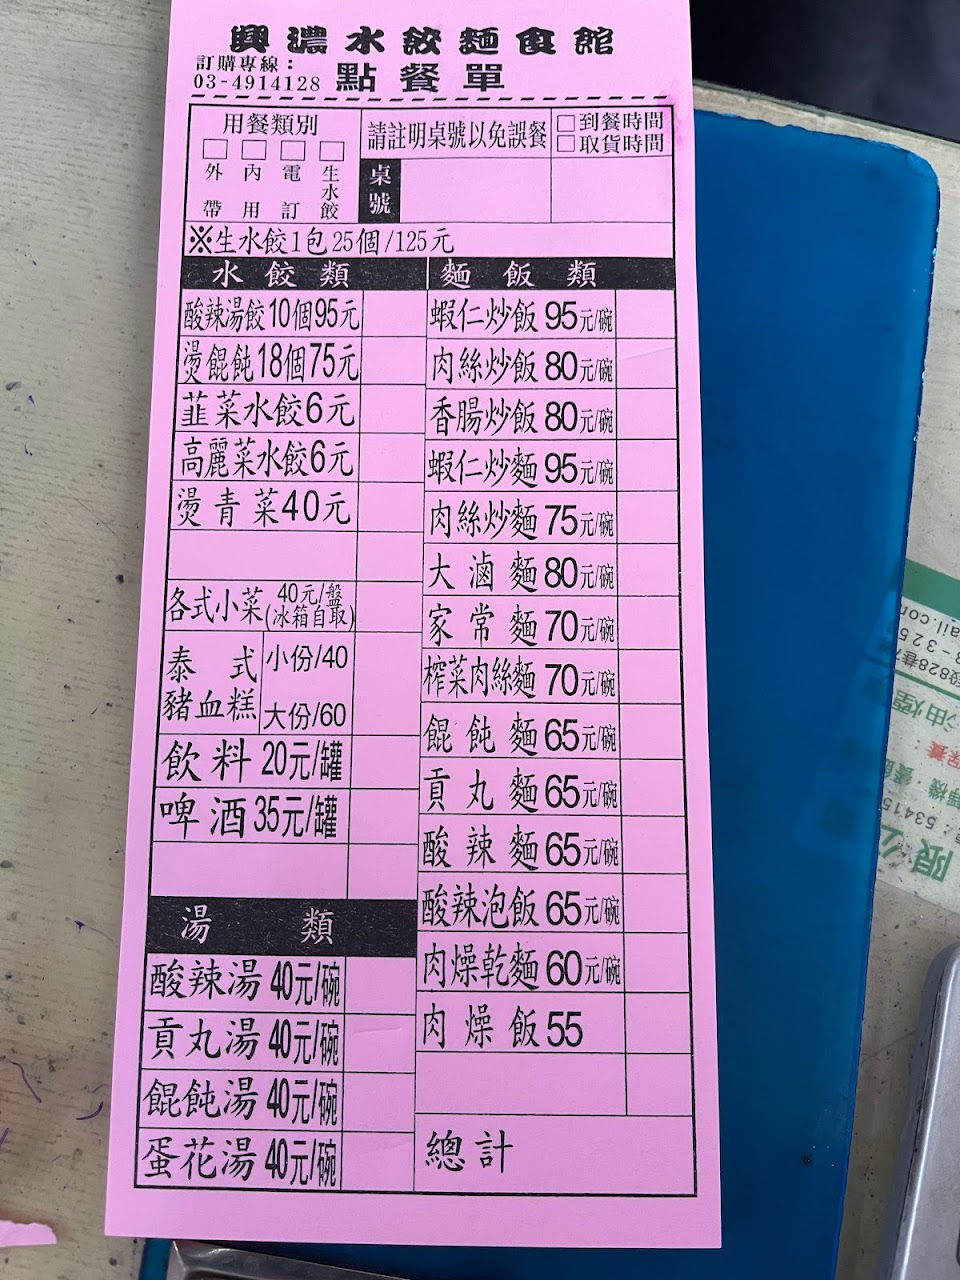 興濃水餃麵食館
訂購專線：
03-4914128
點餐單
用餐類別
外帶
內用
電訂
生水餃
請註明桌號以免誤餐
桌號
到餐時間
取貨時間
※生水餃1包25個/125元
水餃類
酸辣湯餃10個95元
燙餛飩18個75元
韮菜水餃6元
高麗菜水餃6元
燙青菜40元
各式小菜 40元/盤
(冰箱自取)
泰式
豬血糕
小份/40
大份/60
飲料20元/罐
啤酒35元/罐
湯類
酸辣湯40元/碗
貢丸湯40元/碗
餛飩湯40元/碗
蛋花湯40元/碗
麵飯類
蝦仁炒飯95元/碗
肉絲炒飯80元/碗
香腸炒飯80元/碗
蝦仁炒麵95元/碗
肉絲炒麵75元/碗
大滷麵80元/碗
家常麵70元/碗
榨菜肉絲麵70元/碗
餛飩麵65元/碗
貢丸麵65元/碗
酸辣麵65元/碗
酸辣泡飯65元/碗
肉燥乾麵60元/碗
肉燥飯55
總計